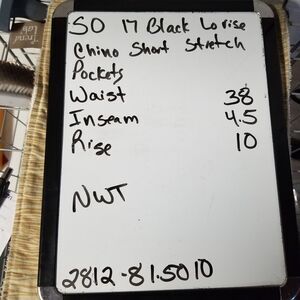 SO 17 Black Lorise
Chino Short Stretch
Pockets
Waist 38
Inseam 4.5
Rise 10
NWT
2812-81.5010